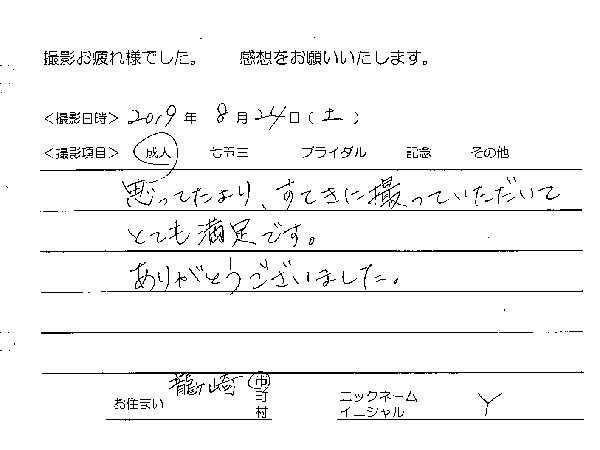 撮影お疲れ様でした。　感想をお願いいたします。
<撮影日時> 2019 年 8 月 24 日 (土)
<撮影項目> 成人 七五三 ブライダル 記念 その他
思ってたより、すてきに撮っていただいて
とても満足です。
ありがとうございました。
お住まい 龍ケ崎 市
町
村
ニックネーム
イニシャル Y